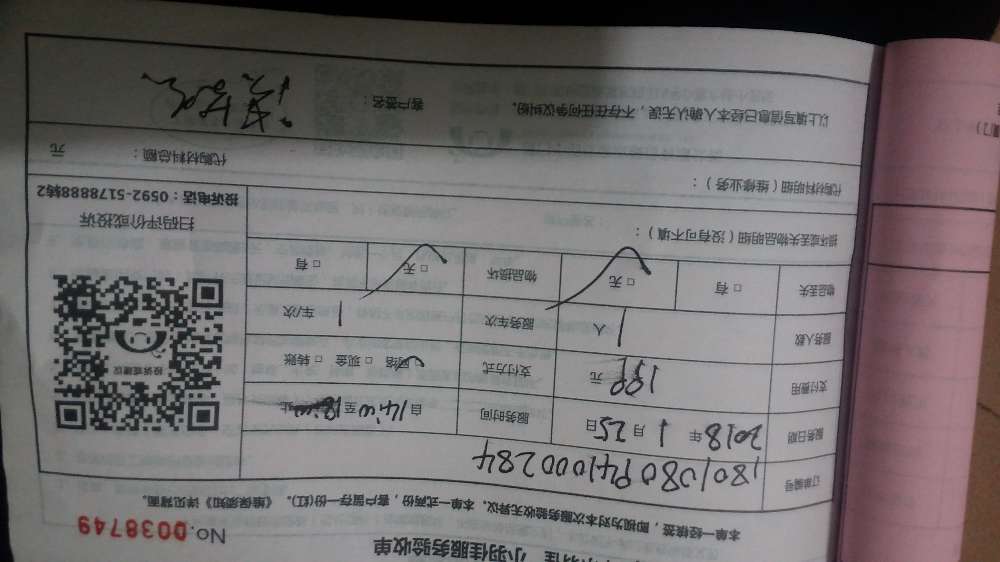 小羽佳服务验收单
No. 0038749
本单一经核签,即视为对本次服务验收无异议。本单一式两份,客户留存一份(红)。《维保须知》详见背面。
订单编号 1801080941000284
服务日期 2018 年 1 月 25 日 服务时间 自 14:00 至 止
支付费用 199 元 支付方式 网络 □ 现金 □ 转账
服务人数 1 人 服务车次 1 车/次
物品丢失 □ 有 □ 无 物品损坏 □ 无 □ 有
损坏或丢失物品明细(没有可不填):
投诉或建议
扫码评价或投诉
投诉电话:0592-5178888转2
代购材料明细(维修业务): 代购材料总额: 元
以上填写信息已经本人确认无误,不存在任何争议纠纷。 客户签名: